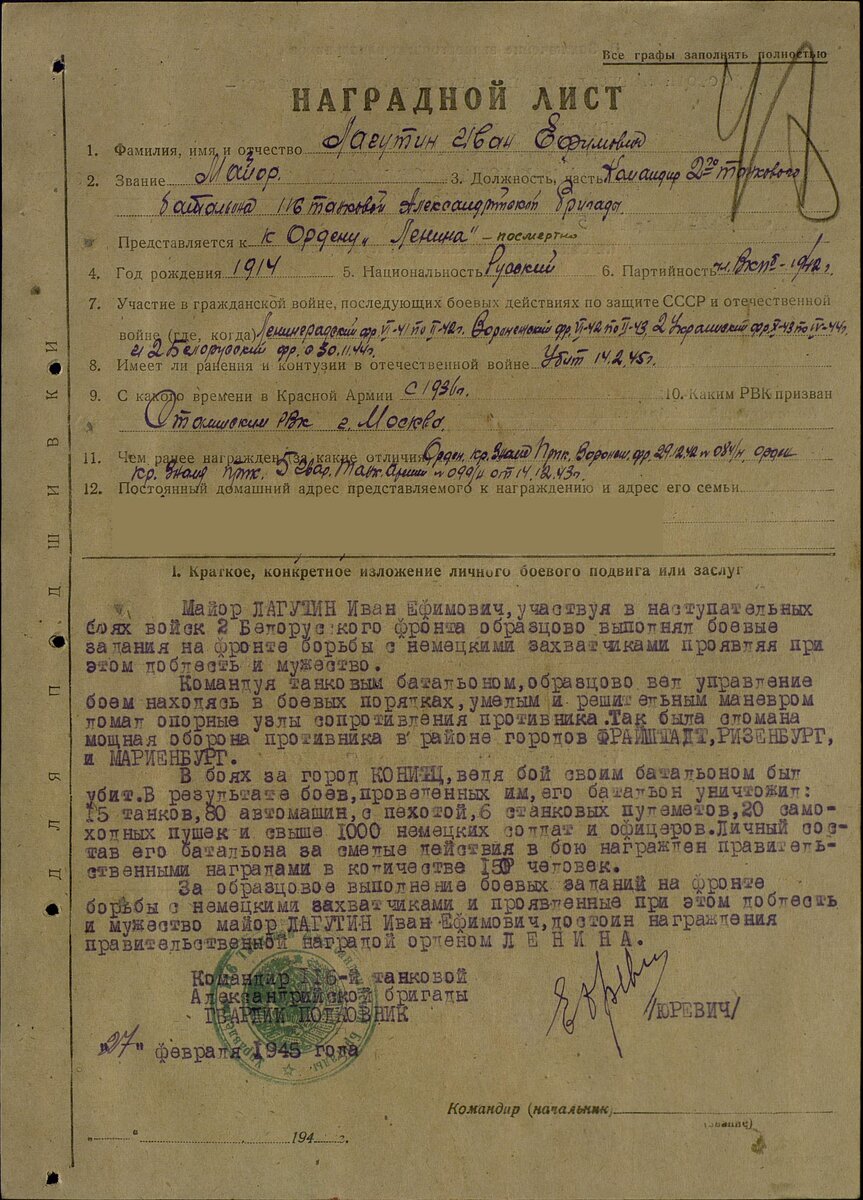 Все графы заполнять полностью
НАГРАДНОЙ ЛИСТ
1. Фамилия, имя и отчество Лагутин Иван Ефимович
2. Звание Майор. 3. Должность, часть Командир 2го танкового
батальона 116 танковой Александрийской бригады
Представляется к к Ордену „Ленина" – посмертно
4. Год рождения 1914 5. Национальность Русский 6. Партийность
7. Участие в гражданской войне, последующих боевых действиях по защите СССР и отечественной
войне (где, когда) Ленинградский фр. VI-41 по II-42г. Воронежский фр. VI-42 по II-43, 2 Украинский фр. X-43 по IV-44г.
и 2 Белорусский фр. с 30.11.44г.
8. Имеет ли ранения и контузии в отечественной войне Убит 14.2.45г.
9. С какого времени в Красной Армии с 1936г. 10. Каким РВК призван
РВК г. Москва
11. Чем ранее награжден за какие отличия Орден Кр. Знамя Прк. Воронеж. фр. 29.12.42 орден
Кр. Знамя Прк. 5 Гвар. Танк. Армии от 14.12.43г.
12. Постоянный домашний адрес представляемого к награждению и адрес его семьи
I. Краткое, конкретное изложение личного боевого подвига или заслуг
Майор ЛАГУТИН Иван Ефимович, участвуя в наступательных
боях войск 2 Белорусского фронта образцово выполнял боевые
задания на фронте борьбы с немецкими захватчиками проявляя при
этом доблесть и мужество.
Командуя танковым батальоном, образцово вел управление
боем находясь в боевых порядках, умелым и решительным маневром
ломал опорные узлы сопротивления противника. Так была сломана
мощная оборона противника в районе городов ФРАЙШТАДТ, РИЗЕНБУРГ,
и МАРИЕНБУРГ.
В боях за город КОНИТЦ, ведя бой своим батальоном был
убит. В результате боев, проведенных им, его батальон уничтожил:
15 танков, 80 автомашин, с пехотой, 6 станковых пулеметов, 20 само-
ходных пушек и свыше 1000 немецких солдат и офицеров. Личный сос-
тав его батальона за смелые действия в бою награжден правитель-
ственными наградами в количестве 150 человек.
За образцовое выполнение боевых заданий на фронте
борьбы с немецкими захватчиками и проявленные при этом доблесть
и мужество майор ЛАГУТИН Иван Ефимович, достоин награждения
правительственной наградой орденом Л Е Н И Н А.
Командир 116-й танковой
Александрийской бригады
ГВАРДИИ ПОЛКОВНИК /ЮРЕВИЧ/
„27" февраля 1945 года
Командир (начальник
(звание)
„ " 194 г.
ДЛЯ ПОДШИВКИ